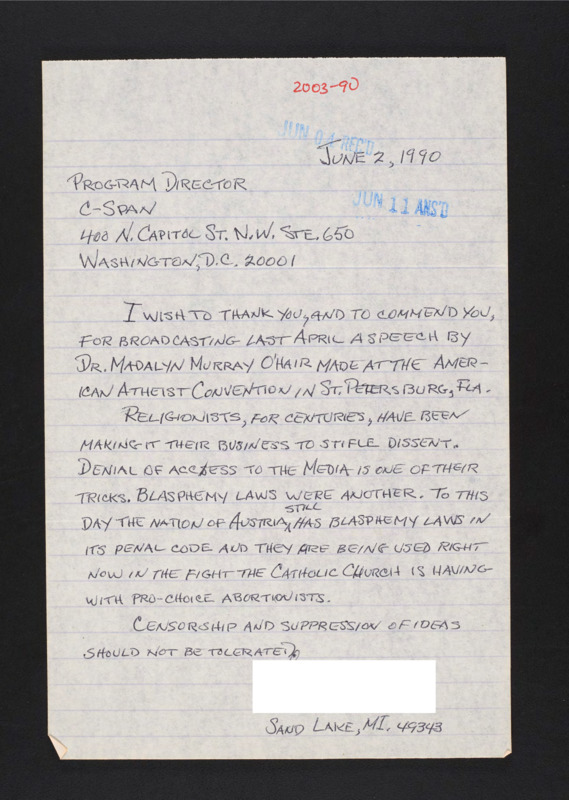 2003-90
JUN 04 REC'D
JUNE 2, 1990
PROGRAM DIRECTOR
JUN 11 ANS'D
C-SPAN
400 N. CAPITOL ST. N.W. STE. 650
WASHINGTON, D.C. 20001
I WISH TO THANK YOU, AND TO COMMEND YOU,
FOR BROADCASTING LAST APRIL A SPEECH BY
DR. MADALYN MURRAY O'HAIR MADE AT THE AMER-
ICAN ATHEIST CONVENTION IN ST. PETERSBURG, FLA.
RELIGIONISTS, FOR CENTURIES, HAVE BEEN
MAKING IT THEIR BUSINESS TO STIFLE DISSENT.
DENIAL OF ACCESS TO THE MEDIA IS ONE OF THEIR
TRICKS. BLASPHEMY LAWS WERE ANOTHER. TO THIS
DAY THE NATION OF AUSTRIA, STILL HAS BLASPHEMY LAWS IN
ITS PENAL CODE AND THEY ARE BEING USED RIGHT
NOW IN THE FIGHT THE CATHOLIC CHURCH IS HAVING
WITH PRO-CHOICE ABORTIONISTS.
CENSORSHIP AND SUPPRESSION OF IDEAS
SHOULD NOT BE TOLERATED.
SAND LAKE, MI. 49343